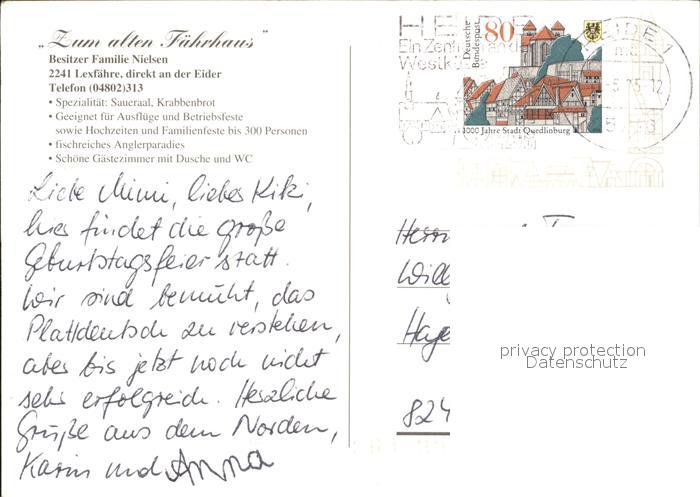 „Zum alten Fährhaus"
Besitzer Familie Nielsen
2241 Lexfähre, direkt an der Eider
Telefon (04802)313
• Spezialität: Saueraal, Krabbenbrot
• Geeignet für Ausflüge und Betriebsfeste
sowie Hochzeiten und Familienfeste bis 300 Personen
• fischreiches Anglerparadies
• Schöne Gästezimmer mit Dusche und WC
Liebe Mimi, liebes Kiki,
hier findet die große
Geburtstagsfeier statt.
Wir sind bemüht, das
Plattdeutsch zu verstehen,
aber bis jetzt noch nicht
sehr erfolgreich. Herzliche
Grüße aus dem Norden,
Karin und Anna
80
Deutsche
Bundespost
1000 Jahre Stadt Quedlinburg
HEIDE
Ein Zentrum an der
Westkü
Herrn
Will
Hage
824
privacy protection
Datenschutz